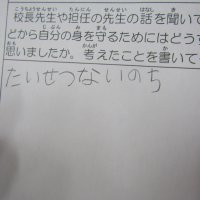 校長先生や担任の先生の話を聞いて
どから自分の身を守るためにはどうす
思いましたか。考えたことを書いて
たいせつないのち